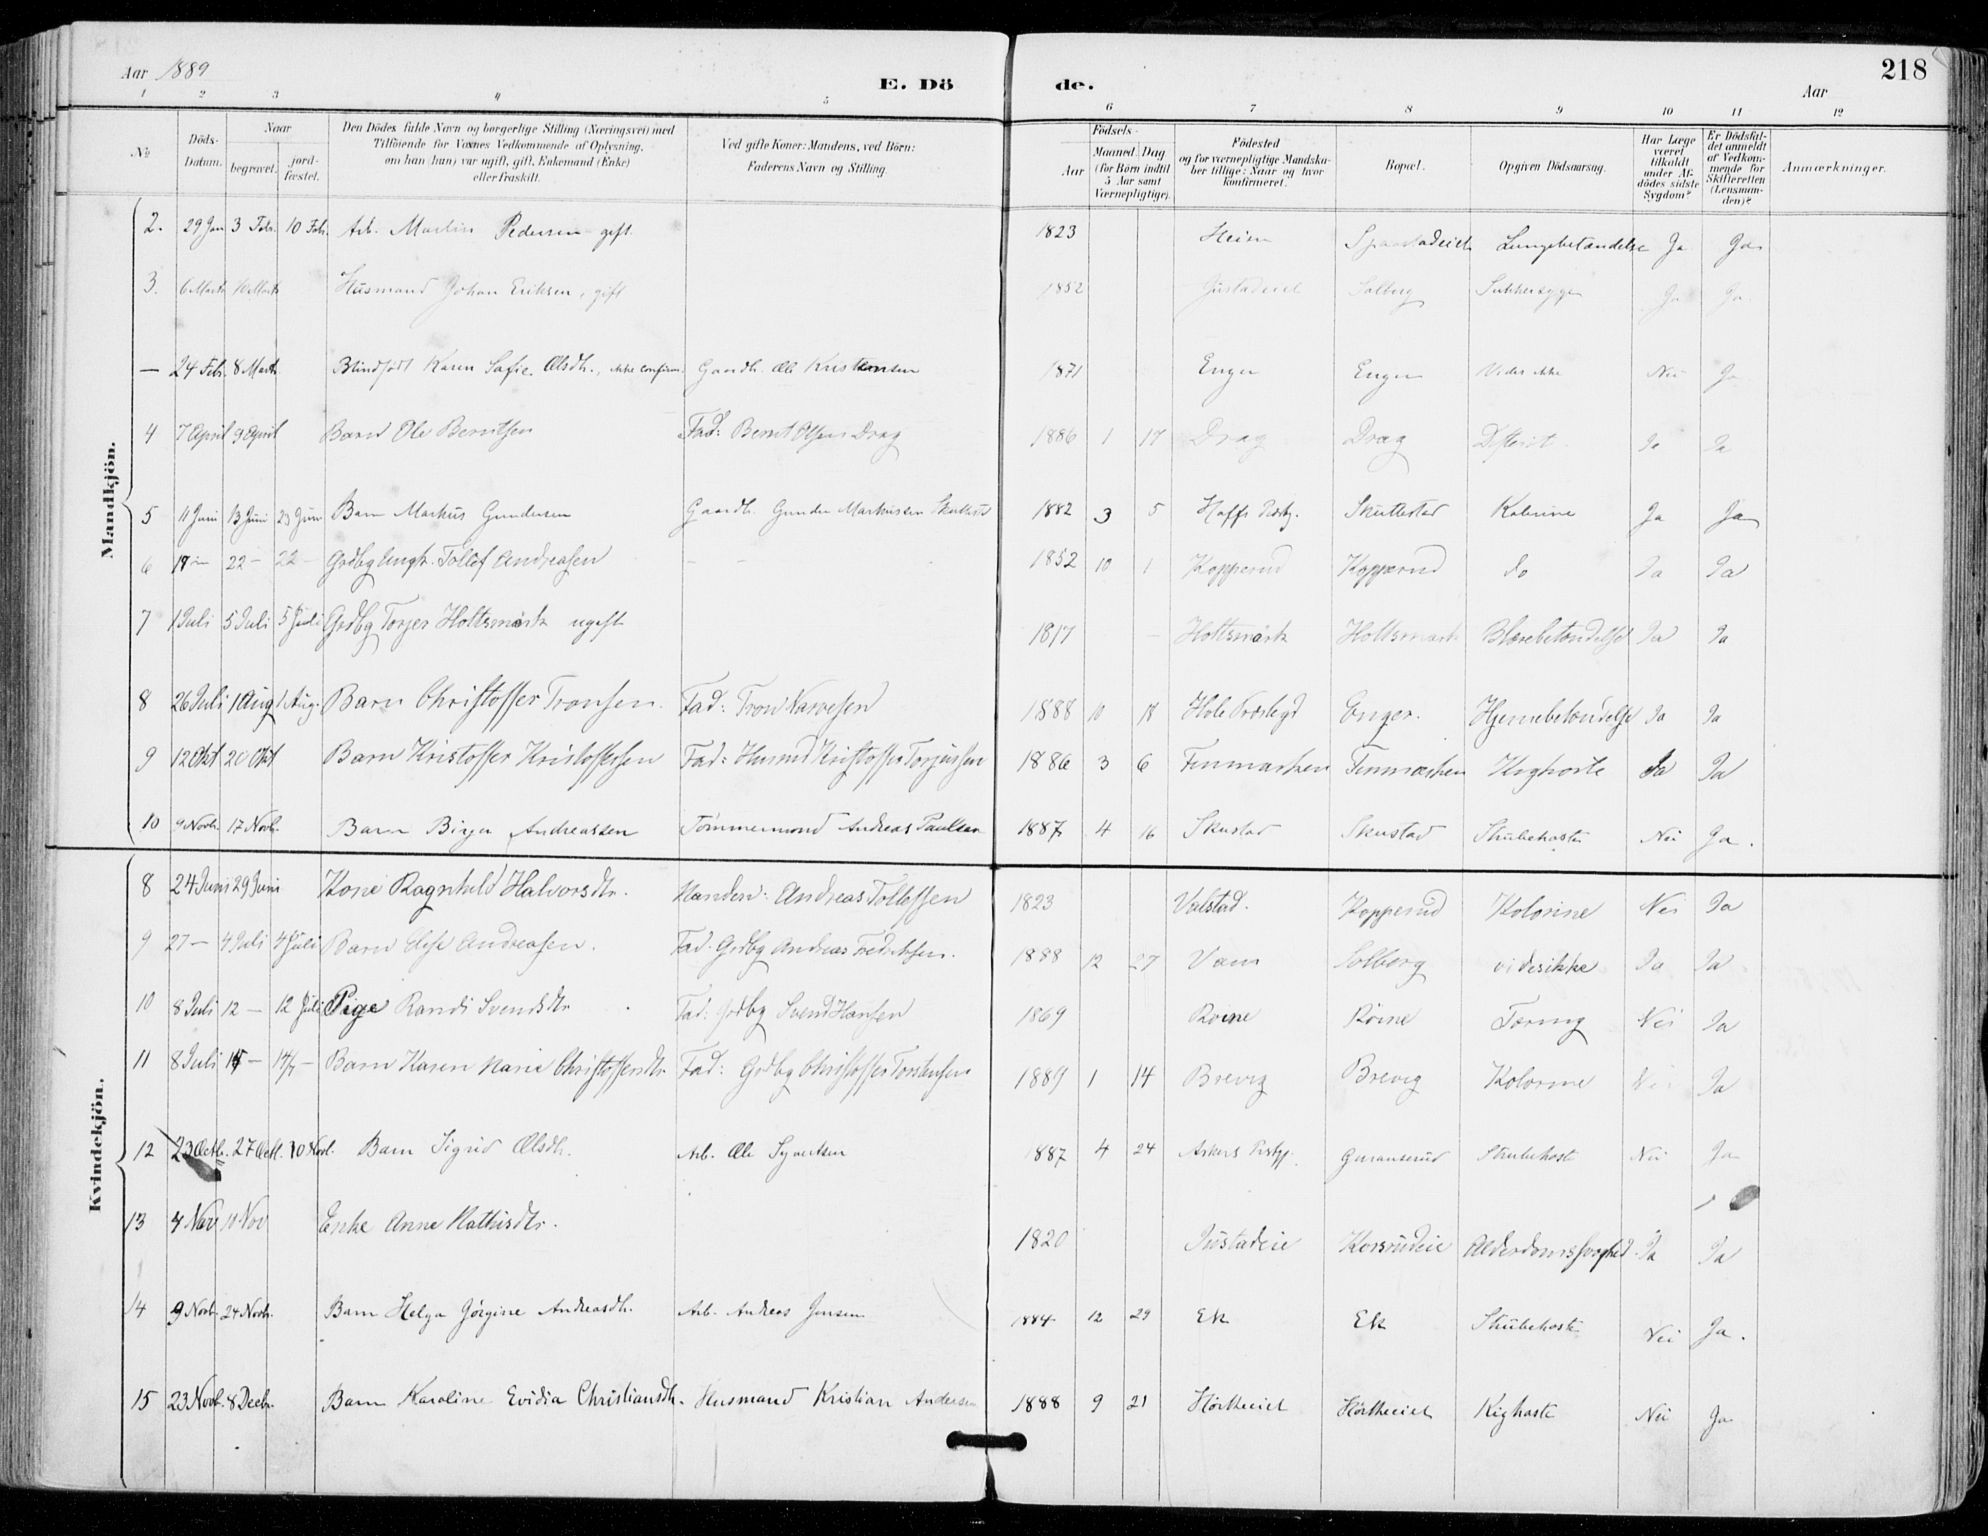 Aar 1889
E. Döde.
Aar
218
1 2 3 4 5 6 7 8 9 10 11 12
No
Döds-Datum.
Naar
begravet.
jord-fæstet.
Den Dödes fulde Navn og borgerlige Stilling (Næringsvei) med Tilföiende for Voxnes Vedkommende af Oplysning, om han (hun) var ugift, gift, Enkemand (Enke) eller fraskilt.
Ved gifte Koner: Mandens, ved Börn: Faderens Navn og Stilling.
Födsels-
Aar
Maaned. Dag
(for Börn indtil 5 Aar samt Værnepligtige).
Födested og for værnepligtige Mandskaber tillige: Naar og hvor konfirmeret.
Bopæl.
Opgiven Dödsaarsag.
Har Læge været tilkaldt under Afdödes sidste Sygdom?
Er Dödsfaldet anmeldt af Vedkommende for Skifteretten (Lensmanden)?
Anmærkninger.
Mandkjön.
2. 29 Jan 3 Febr. 10 Febr. Arb. Martin Pedersen gift. 1823 Heien Lungebetændelse Ja Ja
3. 6 Marts 16 Marts Husmand Johan Eriksen, gift 1852 Justadeiet Solberg Sukkersyge Ja Ja
— 24 Febr. 8 Marts. Blindfödt Karen Sofie Olsdtr., ikke confirm. Gaardb. Ole Kristensen 1871 Enger Enger Vides ikke Nei Ja
4 7 April 9 April Barn Ole Berntsen Fad: Bernt Olsen Drag 1886 1 17 Drag Drag Difterit Ja Ja
5 11 Juni 13 Juni 23 Juni Barn Markus Gundersen Gaardb. Gunder Markussen Skuttestad 1882 3 5 Hoffs Præstg. Skuttestad Kolerine Ja Ja
6 19 — 22 — 22 — Grdbg Ungk. Tollef Andreasen — — 1852 10 1 Kopperud Kopperud do Ja Ja
7 1 Juli 5 Juli 5 Juli Grdbg Torjer Holtsmark ugift 1817 — Holtsmark Holtsmark Blærebetændelse Ja Ja
8 26 Juli 1 Aug 1 Aug. Barn Christoffer Tronsen. Fad: Tron Narvesen 1888 10 18 Hole Præstegd Enger. Hjernebetændelse Ja Ja
9 12 Okt 20 Okt Barn Kristoffer Kristoffersen Fad: Husmd Kristoffer Torjussen 1886 3 6 Finmarken Finmarken Kighoste Ja Ja
10 9 Novbr. 17 Novbr. Barn Birger Andreassen Tömmermand Andreas Paulsen 1887 4 16 Skustad Skustad Strubehoste Nei Ja.
Kvindekjön.
8 24 Juni 29 Juni Kone Ragnhild Halvorsdtr. Manden: Andreas Tollefsen 1823 Valstad. Kopperud Kolorine Nei Ja
9 27 — 4 Juli 4 Juli Barn Elise Andreasen. Fad. Grdbg Andreas Fredriksen. 1888 12 27 Vam Solberg vides ikke Ja Ja
10 8 Juli 12 — 12 Juli Pige Randi Svendsdtr Fad: Grdbg Svend Hansen 1869 Roine Röine Tæring Nei Ja
11 8 Juli 14 — 14/7 — Barn Karen Marie Christoffersdtr Fad: Grdbg Christoffer Torstensen 1889 1 14 Brevig Brevig Kolorine Nei Ja
12 23 Octb. 27 Octb. 10 Novb. Barn Sigrid Olsdtr. Arb. Ole Syvertsen 1887 4 24 Askers Prstgj. Strubehoste Nei Ja
13 4 Nov 10 Nov Enke Anne Mathisdtr. 1820 Justadeie Korsrudeie Alderdomssvaghed Ja Ja
14 9 Novb. 24 Novbr. Barn Helga Jörgine Andreasdtr. Arb. Andreas Jensen 1884 12 29 Ek Ek Strubehoste Nei Ja.
15 23 Novb. 8 Decbr. Barn Karoline Evidia Christiansdtr. Husmand Kristian Andersen 1888 9 21 Hörtheeiet Hörtheeiet Kighoste Nei Ja